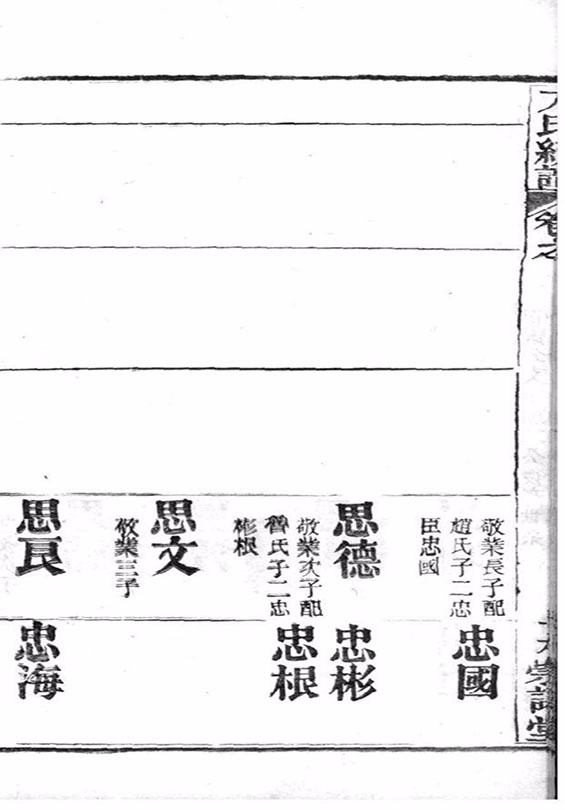 敬業長子配
趙氏子二忠
臣忠國
思德
敬業次子配
曾氏子二忠
彬根
思文
敬業三子
思良
忠國
忠彬
忠根
忠海